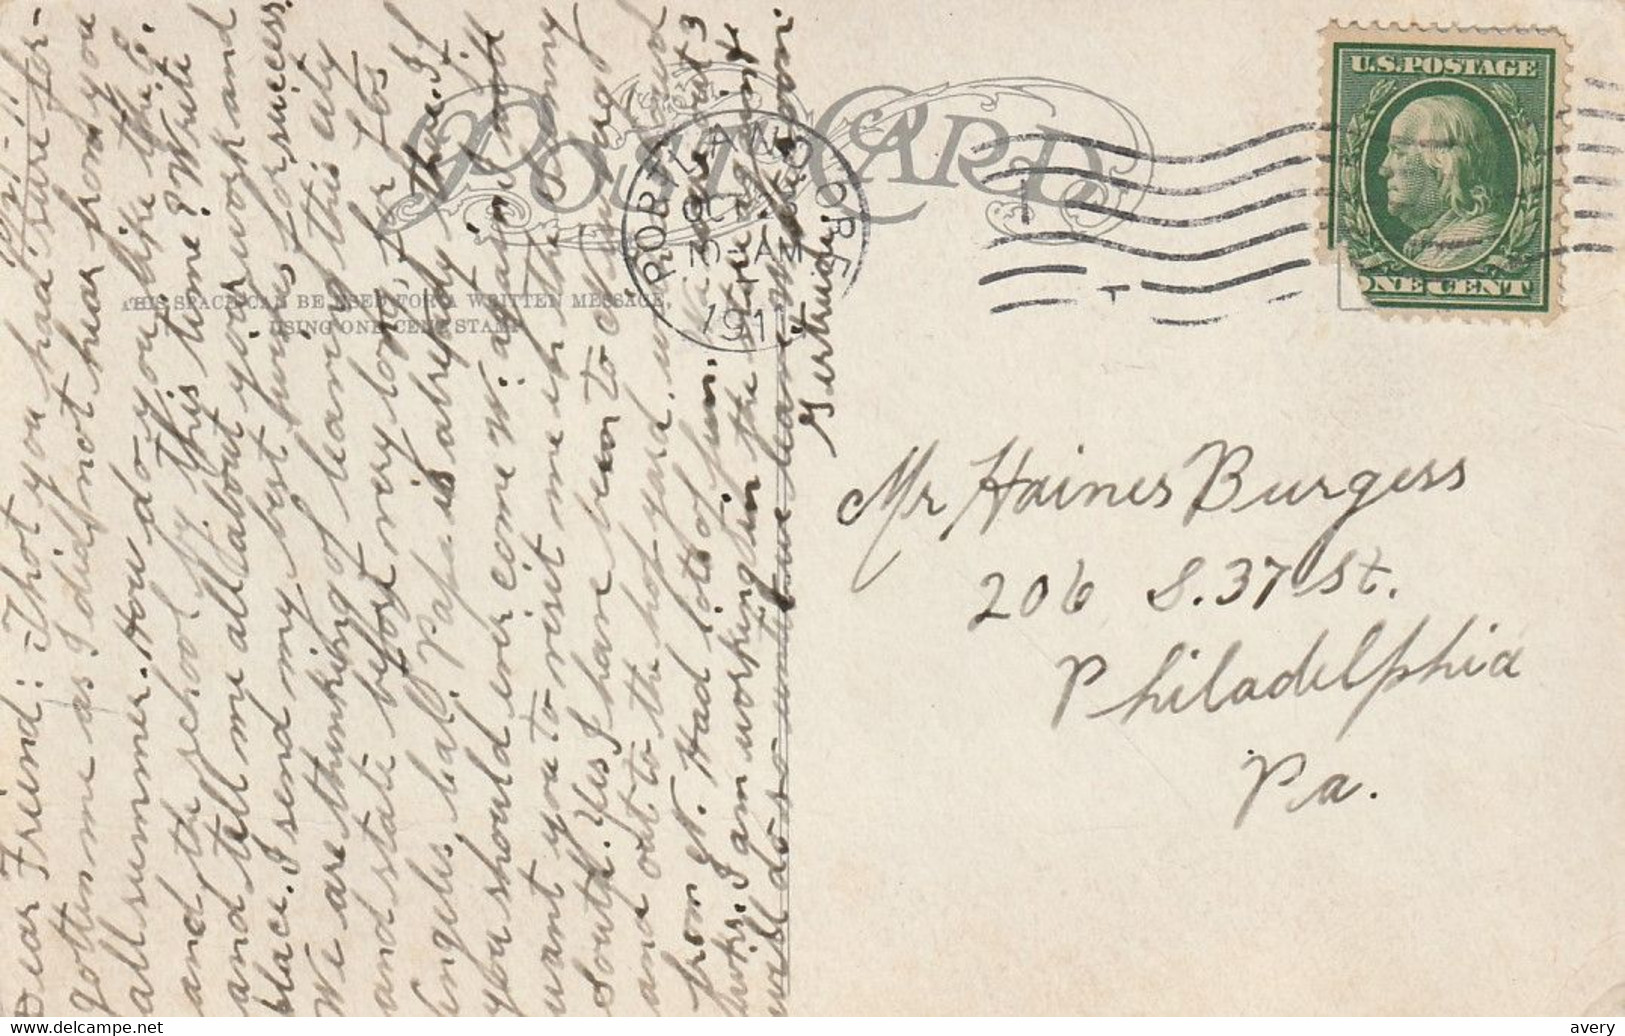 Dear Friend: I thot you had sure for-
gotten me as I did not hear from you
all summer. How do you like the P.
and the school by this time? Write
and tell me all about your work and
place. I send my best wishes for success.
We are thinking of leaving this city
and state before very long, for Los
Angeles, Cal. Papa is already there. If
you should ever come W. again I will
want you to visit me in the Sunny
South. Yes I have been to
and out to the
from it. Had lots of fun.
I am working in the
will do so until we leave
Gertrude
POST CARD
THIS SPACE CAN BE USED FOR A WRITTEN MESSAGE,
USING ONE CENT STAMP
PORTLAND, ORE.
OCT
10-AM
1911
U.S. POSTAGE
ONE CENT
Mr Haines Burgess
206 S. 37 St.
Philadelphia
Pa.
www.delcampe.net
avery